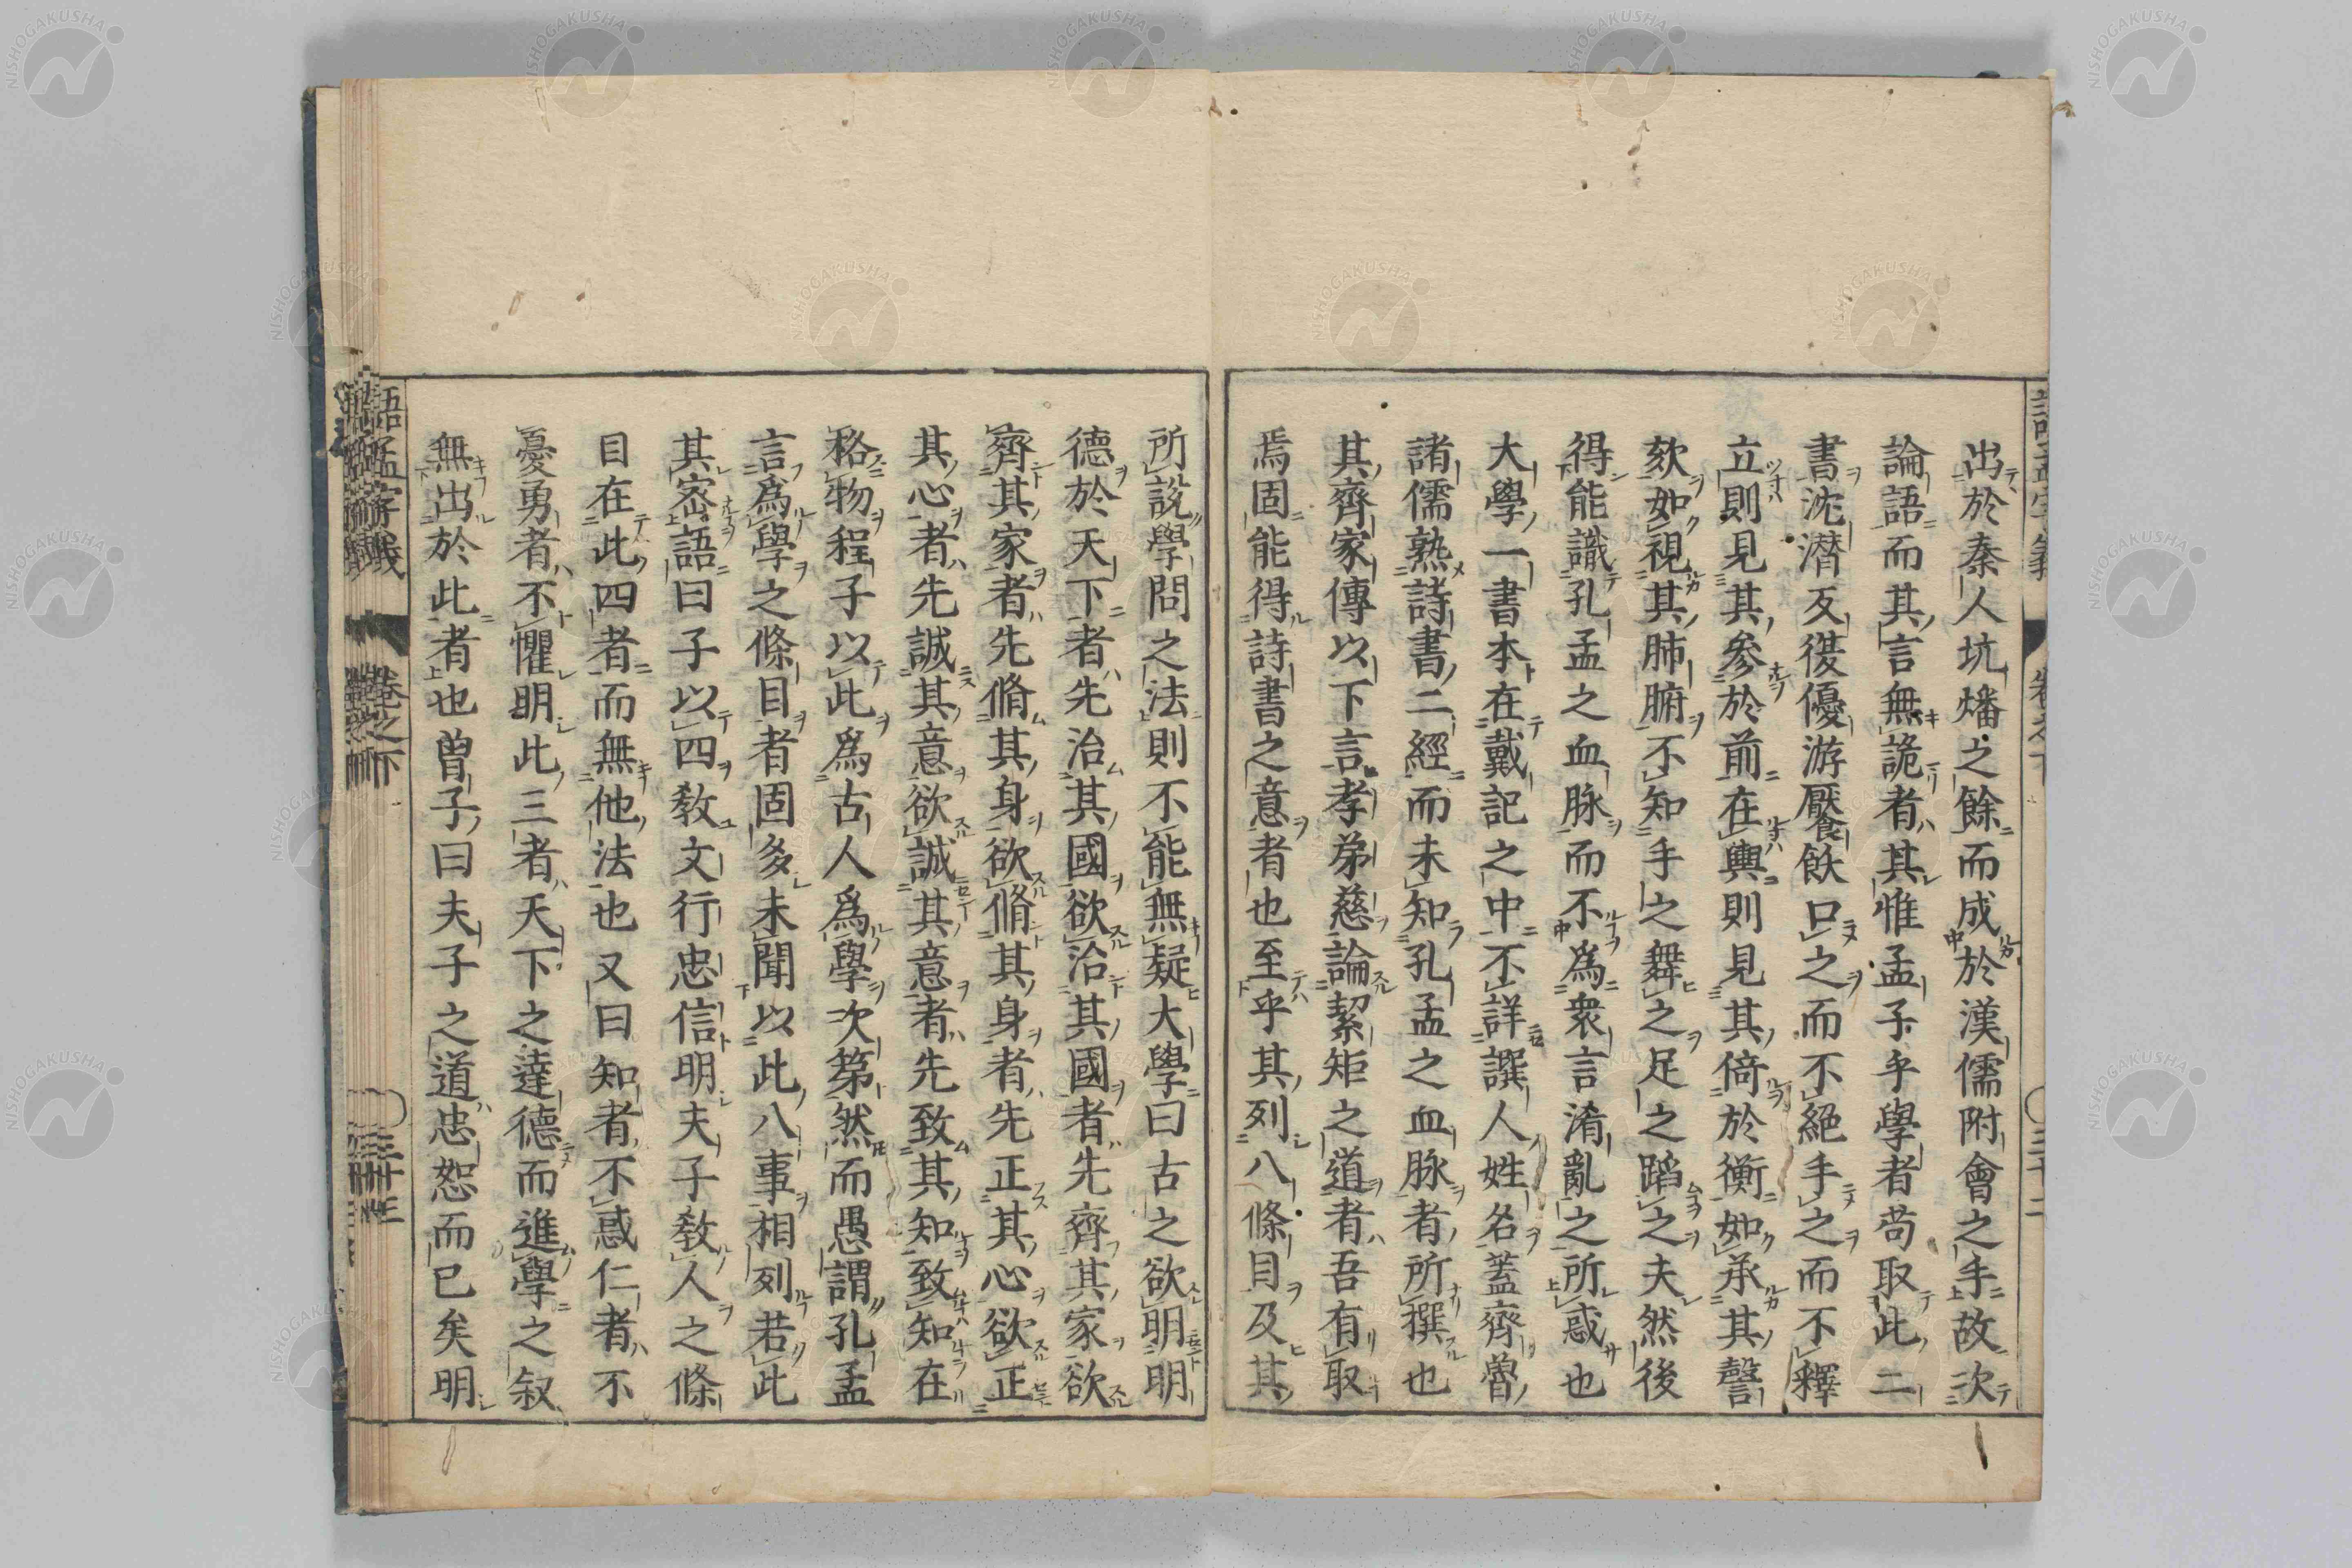 出於秦人坑燔之餘而成於漢儒附會之手故次
論語而其言無詭者其惟孟子乎學者苟取此二
書沈潜反復優游厭飫口之而不絕手之而不釋
立則見其参於前在輿則見其倚於衡如承其謦
欬如視其肺腑不知手之舞之足之蹈之夫然後
得能識孔孟之血脉而不為衆言淆亂之所惑也
大學一書本在戴記之中不詳譔人姓名蓋齊魯
諸儒熟詩書二經而未知孔孟之血脉者所撰也
其齊家傳以下言孝弟慈論絜矩之道者吾有取
焉固能得詩書之意者也至乎其列八條目及其
所說學問之法則不能無疑大學曰古之欲明明
德於天下者先治其國欲治其國者先齊其家欲
齊其家者先脩其身欲脩其身者先正其心欲正
其心者先誠其意欲誠其意者先致其知致知在
格物程子以此為古人為學次第然而愚謂孔孟
言為學之條目者固多未聞以此八事相列若此
其密語曰子以四敎文行忠信明夫子敎人之條
目在此四者而無他法也又曰知者不惑仁者不
憂勇者不懼明此三者天下之達德而進學之叙
無出於此者也曽子曰夫子之道忠恕而已矣明
語孟字義 卷之下
NISHOGAKUSHA